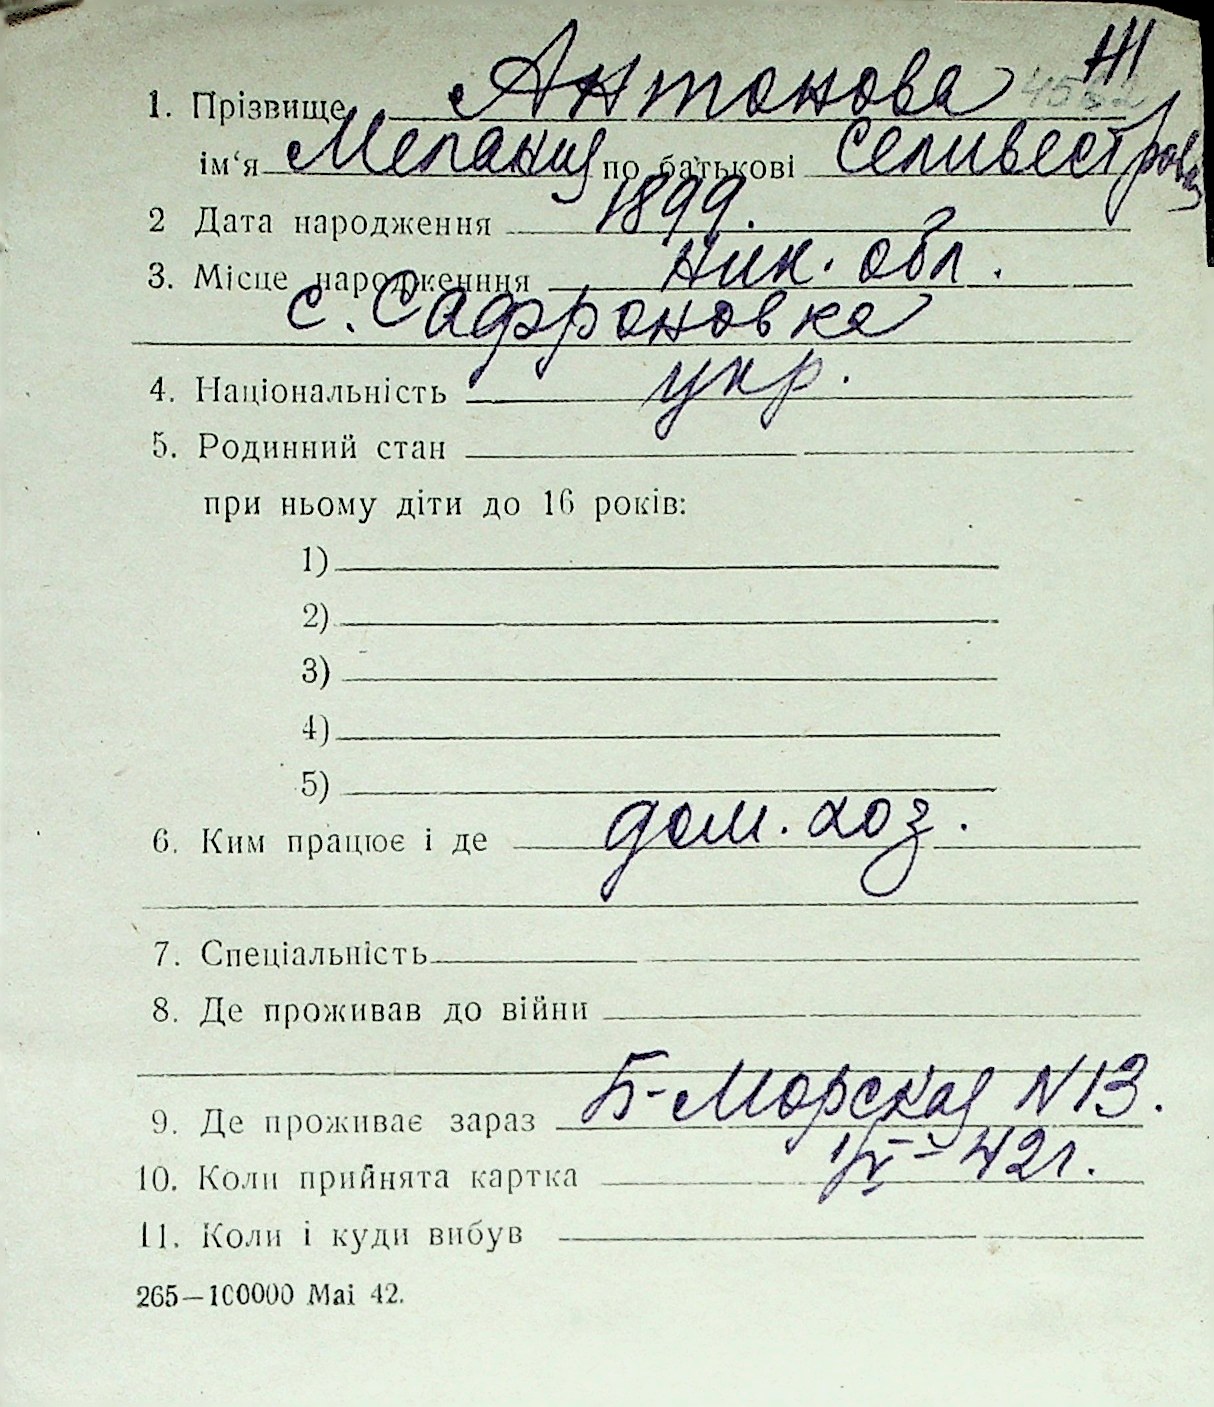 Ж
1. Прізвище Антонова 4562
ім‘я Мелания по батькові Селивестровна
2 Дата народження 1899.
3. Місце народженння Ник. обл.
с. Сафроновка
4. Національність укр.
5. Родинний стан
при ньому діти до 16 років:
1)
2)
3)
4)
5)
6. Ким працює і де дом. хоз.
7. Спеціальність
8. Де проживав до війни
9. Де проживає зараз Б-Морская N 13.
10. Коли прийнята картка 42г.
11. Коли і куди вибув
265—100000 Mai 42.